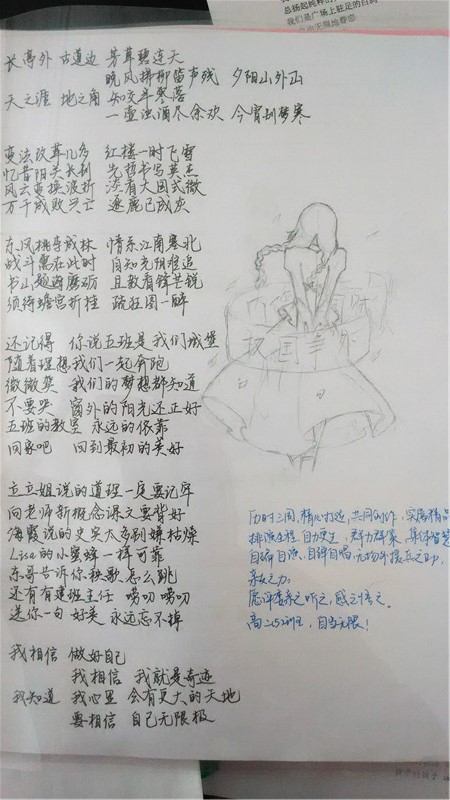 总扬起纯粹的
我们是广场上驻足的白鸽
长亭外 古道边 芳草碧连天
晚风拂柳笛声残 夕阳山外山
天之涯 地之角 知交半零落
一壶浊酒尽余欢 今宵别梦寒
变法改革几多 红楼一时飞雪
忆昔阳关长别 先哲书写英杰
风云变换波折 淡看大国式微
万千成败兴亡 逐鹿已成灰
东风桃李成林 情系江南塞北
战斗焉在此时 自知光阴难追
书山题海磨砺 且教看锋芒锐
须待蟾宫折桂 疏狂图一醉
还记得 你说五班是我们城堡
随着理想我们一起奔跑
微微笑 我们的梦想都知道
不要哭 窗外的阳光还正好
五班的教室 永远的依靠
回家吧 回到最初的美好
立立姐说的道理一定要记牢
向老师新概念课文要背好
海霞说的史实太多别嫌枯燥
Lisa的小蜜蜂一样可靠
东哥告诉你秧歌怎么跳
还有有建班主任 唠叨唠叨
送你一句 好美 永远忘不掉
我相信 做好自己
我相信 我就是奇迹
我知道 我心里 会有更大的天地
要相信 自己无限极
历时三周,精心打造,共同创作,实属精品
排演全程,自力更生,群力群策,集体智慧
自编自演,自弹自唱,无
亲友之力
愿评委亲之听之,感之悟之
高二52班,自当无限!